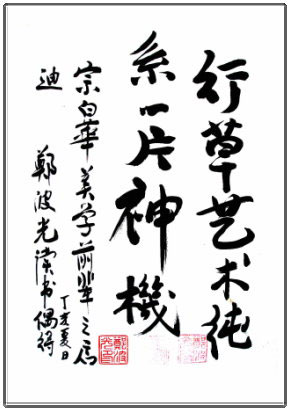 行草艺术纯
系一片神機
宗白華美学前輩之启
迪 鄭波光读书偶得
丁亥夏日